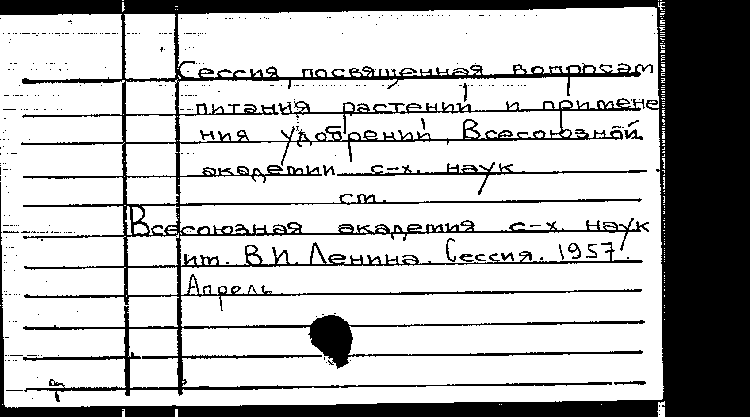 Сессия, посвященная вопросам
питания растений и примене
ния удобрений, Всесоюзной
академии с-х. наук
см.
Всесоюзная академия с-х. наук
им. В.И. Ленина. Сессия. 1957.
Апрель